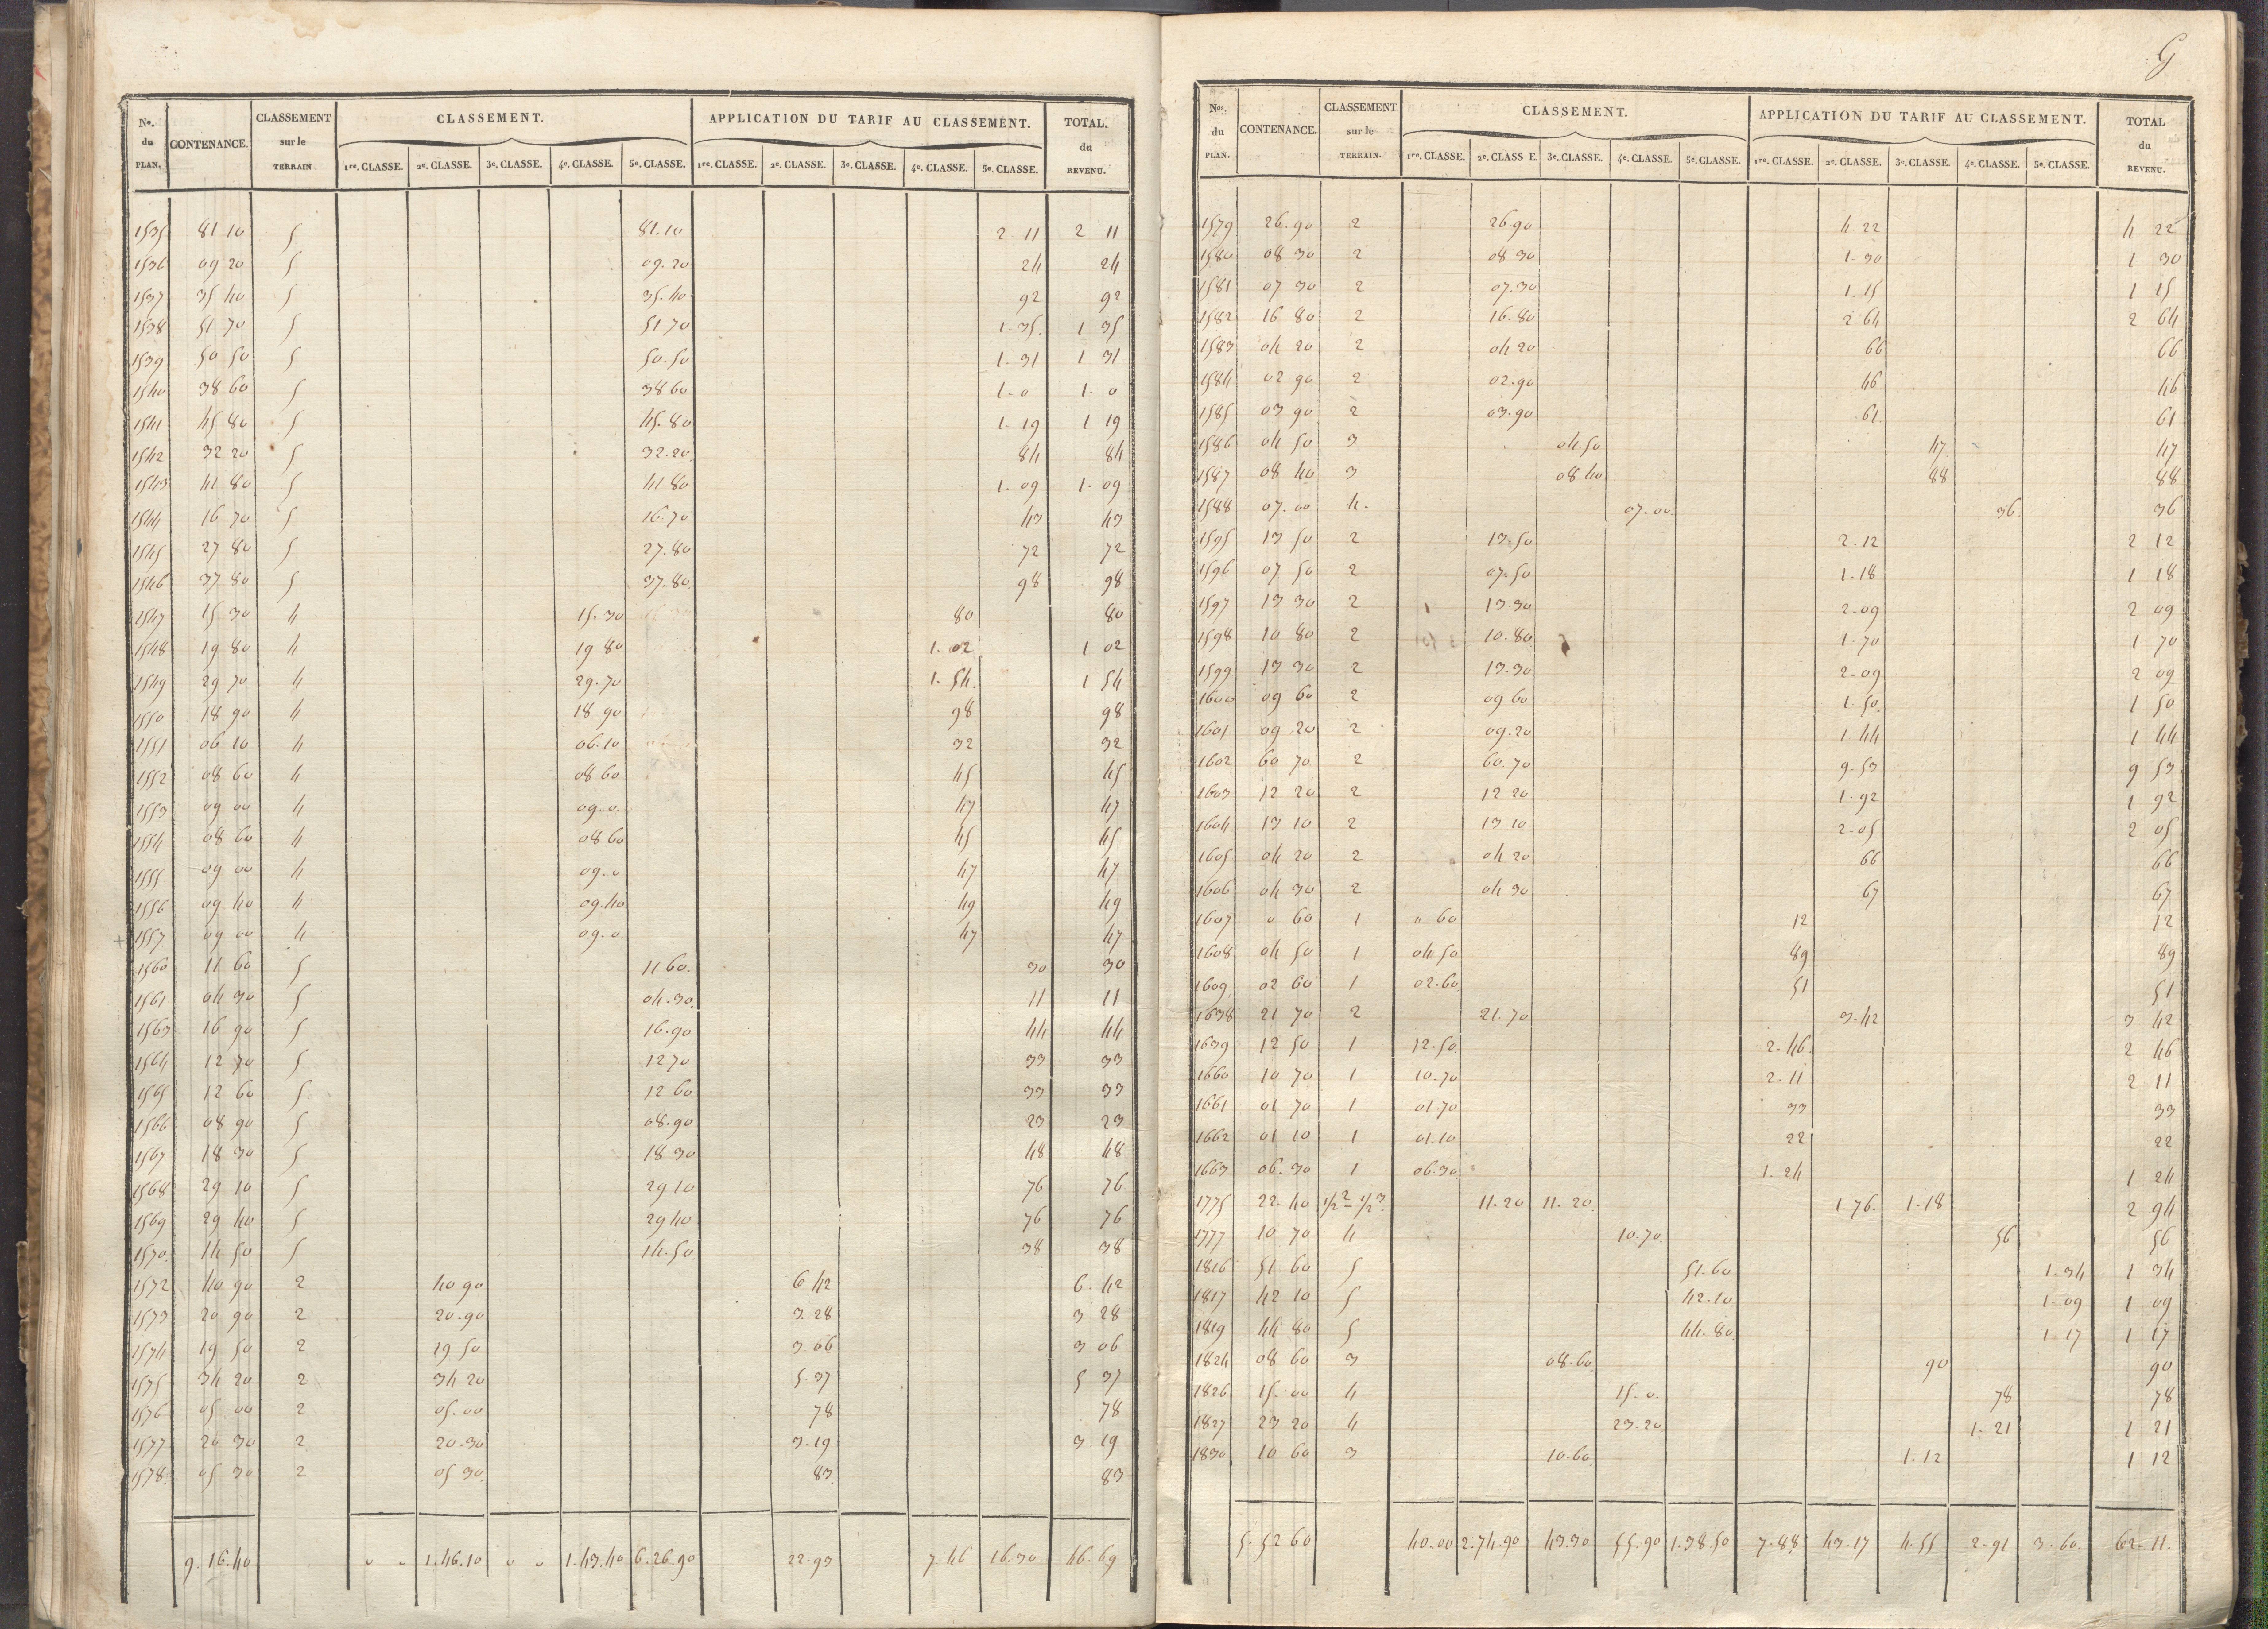 No. du PLAN. CONTENANCE. CLASSEMENT sur le TERRAIN CLASSEMENT. APPLICATION DU TARIF AU CLASSEMENT. TOTAL. du REVENU.
1re. CLASSE. 2e. CLASSE. 3e. CLASSE. 4e. CLASSE. 5e. CLASSE. 1re. CLASSE. 2e. CLASSE. 3e. CLASSE. 4e. CLASSE. 5e. CLASSE.
1535 81 10 5 81.10 2 11 2 11
1536 09 20 5 09.20 24 24
1537 35 40 5 35.40 92 92
1538 51 70 5 51 70 1.35. 1 35
1539 50 50 5 50.50 1.31 1 31
1540 38 60 5 38 60 1.0 1.0
1541 45 80 5 45.80 1.19 1 19
1542 32 20 5 32.20. 84 84
1543 41 80 5 41 80 1.09 1.09
1544 16 70 5 16.70 43 43
1545 27 80 5 27.80 72 72
1546 37 80 5 37.80. 98 98
1547 15 30 4 15.30 80 80
1548 19 80 4 19 80 1.02 1 02
1549 29 70 4 29.70 1.54. 1 54
1550 18 90 4 18 90 98 98
1551 06 10 4 06.10 32 32
1552 08 60 4 08 60 45 45
1553 09 00 4 09.0. 47 47
1554 08 60 4 08 60 45 45
1555 09 00 4 09.0 47 47
1556 09 40 4 09.40 49 49
1557 09 00 4 09.0. 47 47
1560 11 60 5 11 60. 30 30
1561 04 30 5 04.30. 11 11
1563 16 90 5 16.90 44 44
1564 12 70 5 12 70 33 33
1565 12 60 5 12 60 33 33
1566 08 90 5 08.90 23 23
1567 18 30 5 18 30 48 48
1568 29 10 5 29 10 76 76
1569 29 40 5 29 40 76 76
1570. 14 50 5 14.50. 38 38
1572 40 90 2 40 90 6 42 6.42
1573 20 90 2 20.90 3.28 3 28
1574 19 50 2 19 50 3.06 3 06
1575 34 20 2 34 20 5.37 5 37
1576 05 00 2 05.00 78 78
1577 20 30 2 20.30 3.19 3 19
1578 05 30 2 05 30. 83. 83
9.16.40 0 0 1.46.10 0 0 1.43.40 6.26.90 22.93 7 46 16.30 46.69
G
Nos. du PLAN. CONTENANCE. CLASSEMENT sur le TERRAIN. CLASSEMENT. APPLICATION DU TARIF AU CLASSEMENT. TOTAL du REVENU.
1re. CLASSE. 2e. CLASS E. 3e. CLASSE. 4e. CLASSE. 5e. CLASSE. 1re. CLASSE. 2e. CLASSE. 3e. CLASSE. 4e. CLASSE. 5e. CLASSE.
1579 26.90 2 26.90 4.22 4 22
1580 08 30 2 08 30 1.30 1 30
1581 07 30 2 07.30 1.15 1 15
1582 16 80 2 16.80 2.64 2 64
1583 04 20 2 04 20 66 66
1584 02 90 2 02.90 46. 46
1585 03 90 2 03.90 61. 61
1586 04 50 3 04.50 47 47
1587 08 40 3 08 40 88 88
1588 07.00 4. 07.00. 36. 36
1595 13 50 2 13.50 2.12 2 12
1596 07 50 2 07.50 1.18 1 18
1597 13 30 2 13.30 2.09 2 09
1598 10 80 2 10.80 1.70 1 70
1599 13 30 2 13.30 2.09 2 09
1600 09 60 2 09 60 1.50. 1 50
1601 09 20 2 09.20 1.44 1 44
1602 60 70 2 60.70 9.53 9 53
1603 12 20 2 12 20 1.92 1 92
1604 13 10 2 13 10 2.05 2 05
1605 04 20 2 04 20 66 66
1606 04 30 2 04 30 67 67
1607 0 60 1 0 60 12 12
1608 04 50 1 04.50 89 89
1609 02 60 1 02.60 51 51
1638 21 70 2 21.70 3.42 3 42
1639 12 50 1 12.50. 2.46. 2 46
1660 10 70 1 10.70 2.11 2 11
1661 01 70 1 01.70 33 33
1662 01 10 1 01.10 22 22
1663 06.30 1 06.30. 1.24 1 24
1775 22.40 1/2 2 1/2 3. 11.20 11.20. 1.76. 1.18 2 94
1777 10 70 4 10.70. 56 56
1816 51 60 5 51.60 1.34 1 34
1817 42 10 5 42.10 1.09 1 09
1819 44 80 5 44.80. 1 17 1 17
1824 08 60 3 08.60. 90 90
1826 15.00 4 15.0. 78 78
1827 23 20 4 23.20 1.21 1 21
1830 10 60 3 10.60. 1.12 1 12
5.52 60 40.00 2.74.90 43.30 55.90 1.38.50 7.88 43.17 4.55 2.91 3.60. 62.11.